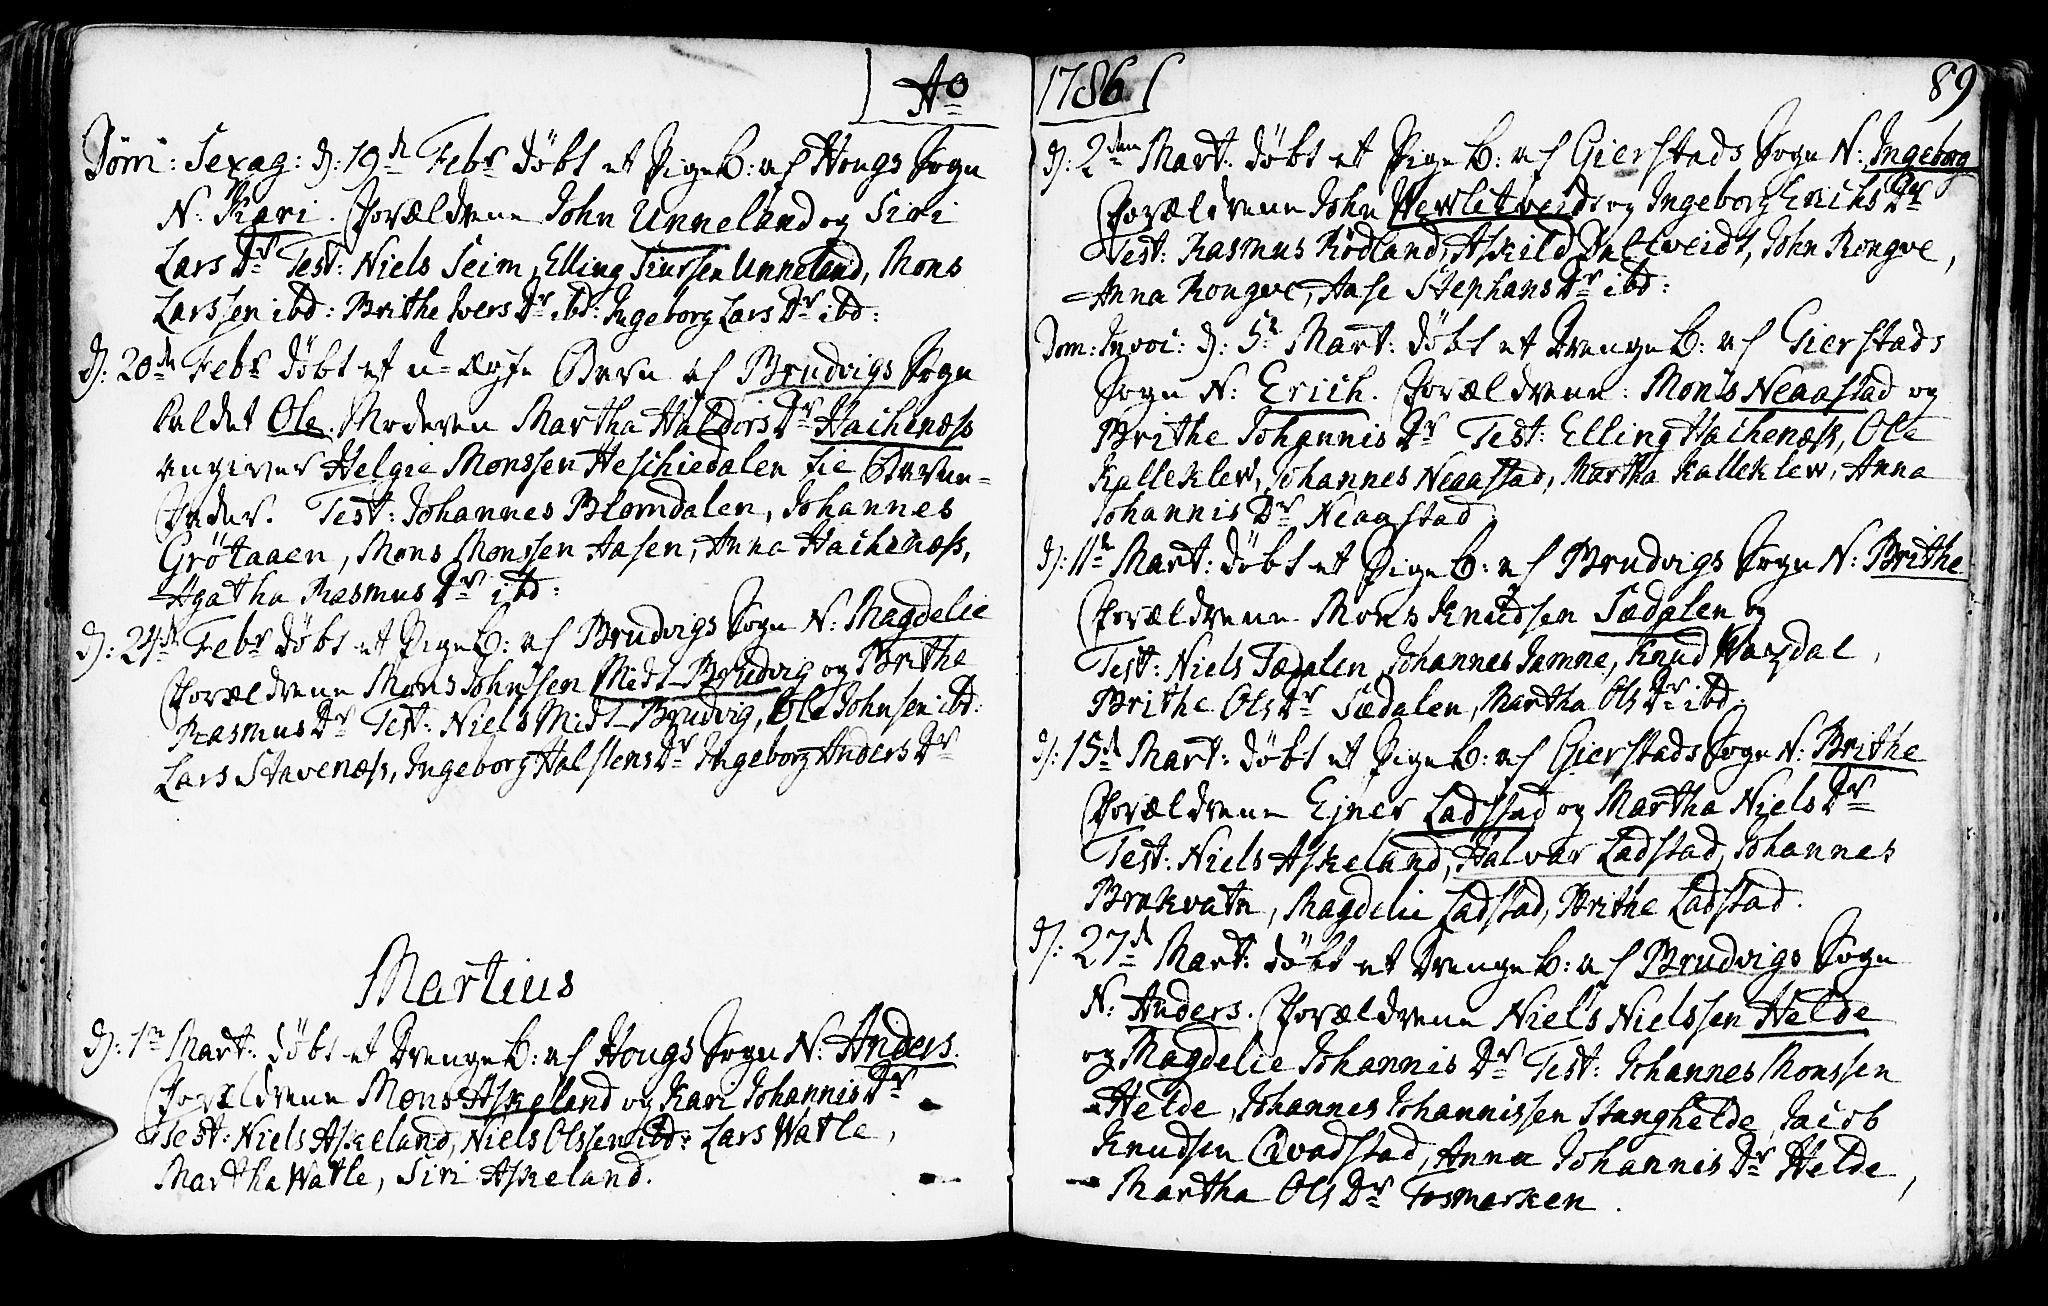 Ao
Dom: Sexag: d: 19de Febr døbt et Pige B: af Hougs Sogn
N: Kari. Forældrene John Unneland og Siri
Lars Dr Test: Niels Seim, Elling Siursen Unneland, Mons
Larssen ibd: Brithe Ivers Dr ibd: Ingeborg Lars Dr ibd:
d: 20de Febr døbt et u-ægte Barn af Brudvigs Sogn
kaldet Ole. Moderen Martha Haldors Dr Hachenæss
angiver Helgie Monssen Heschiedalen til Barne-
Fader. Test: Johannes Blomdalen, Johannes
Grøtaaen, Mons Monssen Aasen, Anna Hachenæss,
Agatha Rasmus Dr ibd:
d: 24de Febr døbt et Pige B: af Brudvigs Sogn N: Magdelie
Forældrene Mons Johnssen Midt-Brudvig og Brithe
Rasmus Dr Test: Niels Midt-Brudvig, Ole Johnsen ibd:
Lars Stavenæss, Ingeborg Halstens Dr Ingeborg Anders Dr
Martius
d: 1te Mart: døbt et Drenge B: af Hougs Sogn N: Anders.
Forældrene Mons Askeland og Kari Johannis Dr
Test: Niels Askeland, Niels Olssen ibd: Lars Watle,
Martha Watle, Siri Askeland.
1786 89
d: 2den Mart: døbt et Pige B: af Gierstads Sogn N: Ingeborg
Forældrene John Herlitweidt og Ingeborg Erichs Dr
Test: Rasmus Rødland, Askild Dalltveidt, John Rongve,
Anna Rongve, Aase Stephans Dr ibd:
Dom: Invoc: d: 5te Mart: døbt et Drenge B: af Gierstads
Sogn N: Erich. Forældrene: Mons Neaastad og
Brithe Johannis Dr Test: Elling Hachenæss, Ole
Kalleklev, Johannes Neaastad, Martha Kalleklew, Anna
Johannis Dr Neaastad
d: 11te Mart: døbt et Pige B: af Brudvigs Sogn N: Brithe
Forældrene Mons Knudsen Sædalen og
Test: Niels Sædalen, Johannes Jamne, Knud Waaßdal,
Brithe Ols Dr Sædalen, Martha Ols Dr ibd.
d: 15de Mart: døbt et Pige B: af Gierstads Sogn N: Brithe
Forældrene Ejner Ladstad og Martha Niels Dr
Test: Niels Askeland, Halvar Ladstad, Johannes
Brekvatn, Magdelie Ladstad, Brithe Ladstad.
d: 27de Mart: døbt et Drenge B: af Brudvigs Sogn
N: Anders. Forældrene Niels Nielssen Helde
og Magdelie Johannis Dr Test: Johannes Monssen
Helde, Johannes Johannissen Stanghelde, Jacob
Knudsen Qvadstad, Anna Johannis Dr Helde,
Martha Ols Dr Fosmarken.